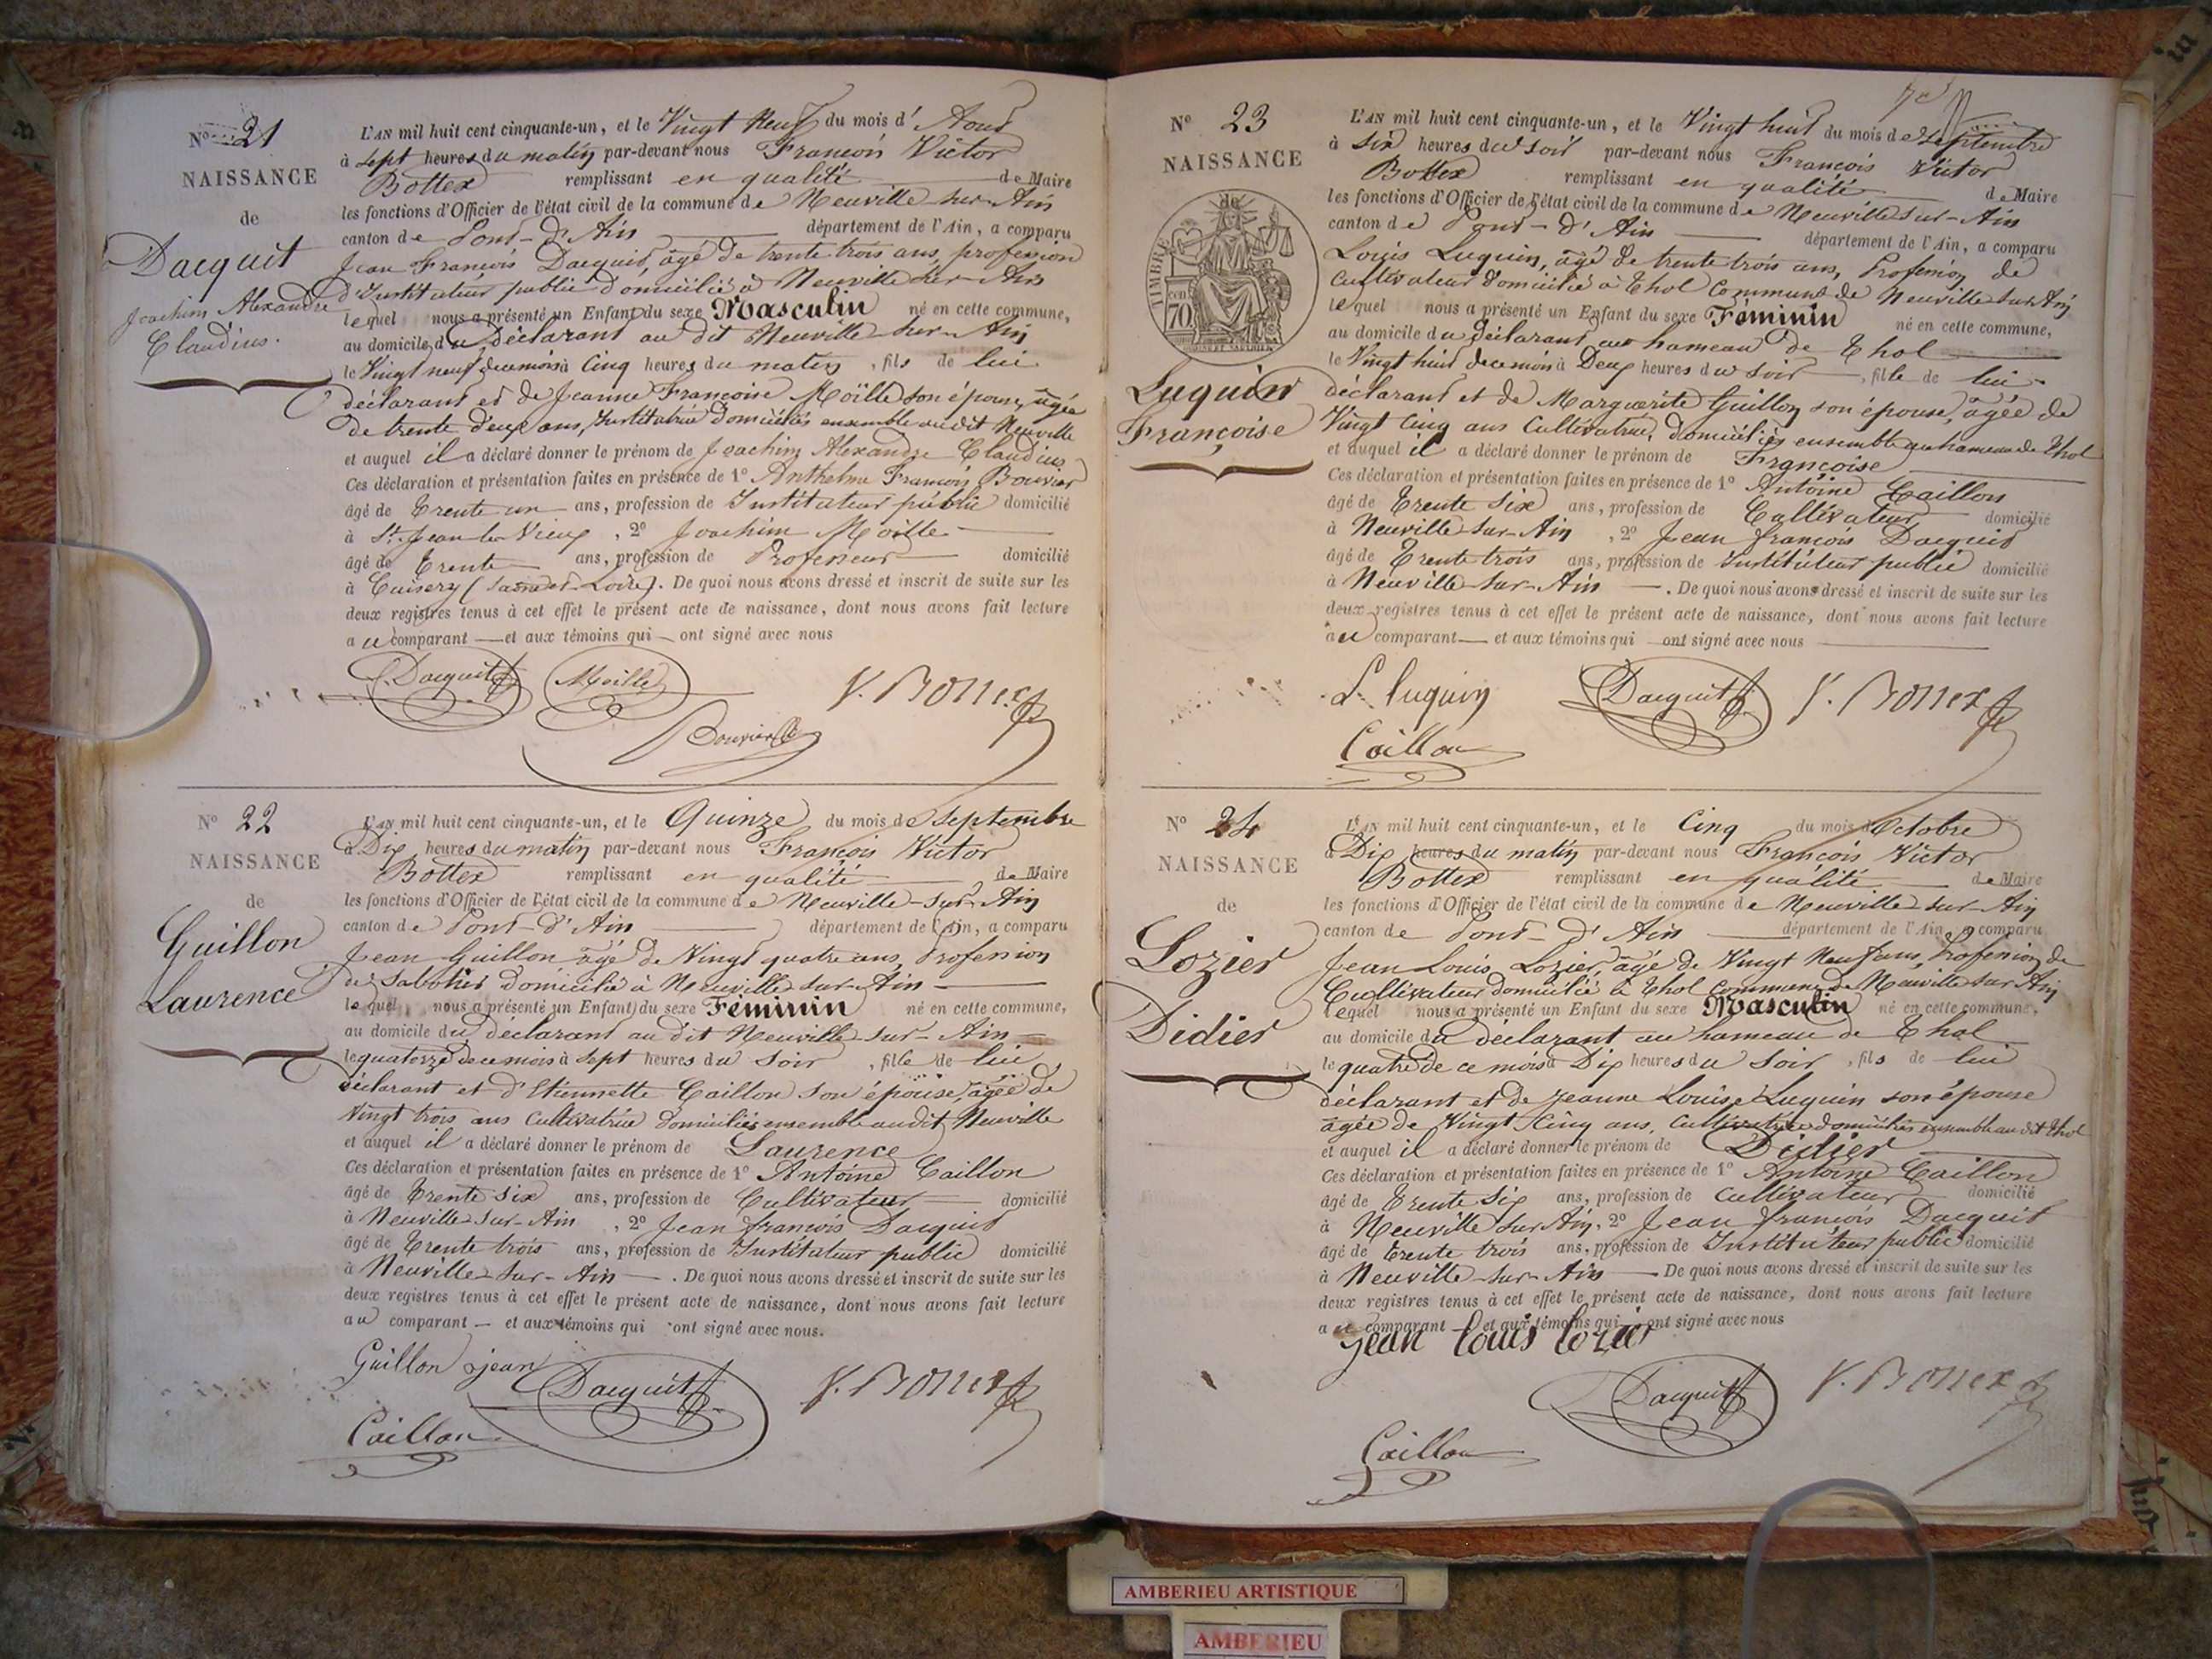 N° 21
NAISSANCE
de
Dacquit
Joachim Alexandre
Claudius.
L'AN mil huit cent cinquante-un, et le Vingt Neuf du mois d' Aout
à sept heures du matin par-devant nous François Victor
Bottex remplissant en qualité de Maire
les fonctions d'Officier de l'état civil de la commune de Neuville sur Ain
canton de Pont-d'Ain département de l'Ain, a comparu
Jean François Dacquit, âgé de trente trois ans, profession
d'Instituteur public domicilié à Neuville sur Ain
lequel nous a présenté un Enfant du sexe Masculin né en cette commune,
au domicile du Déclarant au dit Neuville sur Ain
le Vingt neuf de ce mois à Cinq heures du matin, fils de lui
déclarant et de Jeanne Françoise Moille son épouse, âgée
de trente deux ans, Institutrice domiciliés ensemble au dit Neuville
et auquel il a déclaré donner le prénom de Joachim Alexandre Claudius
Ces déclaration et présentation faites en présence de 1° Anthelme François Bouvier
âgé de Trente un ans, profession de Instituteur public domicilié
à St. Jean le Vieux, 2° Joachim Moille
âgé de Trente ans, profession de Professeur domicilié
à Cuisery (Saone et Loire). De quoi nous avons dressé et inscrit de suite sur les
deux registres tenus à cet effet le présent acte de naissance, dont nous avons fait lecture
au comparant et aux témoins qui ont signé avec nous
Dacquit Moille V. Bottex
Bouvier
N° 22
NAISSANCE
de
Guillon
Laurence
L'AN mil huit cent cinquante-un, et le Quinze du mois de Septembre
à Dix heures du matin par-devant nous François Victor
Bottex remplissant en qualité de Maire
les fonctions d'Officier de l'état civil de la commune de Neuville-sur-Ain
canton de Pont-d'Ain département de l'Ain, a comparu
Jean Guillon âgé de Vingt quatre ans, Profession
de Sabotier domicilié à Neuville sur-Ain
lequel nous a présenté un Enfant du sexe Féminin né en cette commune,
au domicile du déclarant au dit Neuville sur-Ain
le quatorze de ce mois à sept heures du soir, fille de lui
déclarant et d'Etiennette Caillon son épouse, âgée de
Vingt trois ans Cultivatrice domiciliés ensemble au dit Neuville
et auquel il a déclaré donner le prénom de Laurence
Ces déclaration et présentation faites en présence de 1° Antoine Caillon
âgé de Trente six ans, profession de Cultivateur domicilié
à Neuville sur-Ain, 2° Jean François Dacquit
âgé de Trente trois ans, profession de Instituteur public domicilié
à Neuville sur-Ain. De quoi nous avons dressé et inscrit de suite sur les
deux registres tenus à cet effet le présent acte de naissance, dont nous avons fait lecture
au comparant et aux témoins qui ont signé avec nous.
Guillon jean Dacquit V. Bottex
Caillon
N° 23
NAISSANCE
de
TIMBRE
70
Luquin
Françoise
L'AN mil huit cent cinquante-un, et le Vingt huit du mois de Septembre
à Six heures du soir par-devant nous François Victor
Bottex remplissant en qualité de Maire
les fonctions d'Officier de l'état civil de la commune de Neuville sur-Ain
canton de Pont-d'Ain département de l'Ain, a comparu
Louis Luquin, âgé de trente trois ans, Profession de
Cultivateur domicilié à Thol Commune de Neuville sur Ain
lequel nous a présenté un Enfant du sexe Féminin né en cette commune,
au domicile du déclarant au hameau de Thol
le Vingt huit de ce mois à Deux heures du soir, fille de lui
déclarant et de Marguerite Guillon son épouse, âgée de
Vingt Cinq ans Cultivatrice, domiciliés ensemble au hameau de Thol
et auquel il a déclaré donner le prénom de Françoise
Ces déclaration et présentation faites en présence de 1° Antoine Caillon
âgé de Trente Six ans, profession de Cultivateur domicilié
à Neuville sur-Ain, 2° Jean françois Dacquit
âgé de Trente trois ans, profession de Instituteur public domicilié
à Neuville sur-Ain. De quoi nous avons dressé et inscrit de suite sur les
deux registres tenus à cet effet le présent acte de naissance, dont nous avons fait lecture
au comparant et aux témoins qui ont signé avec nous
L. luquin Dacquit V. Bottex
Caillon
N° 24
NAISSANCE
de
Lozier
Didier
L'AN mil huit cent cinquante-un, et le Cinq du mois d'Octobre
à Dix heures du matin par-devant nous François Victor
Bottex remplissant en qualité de Maire
les fonctions d'Officier de l'état civil de la commune de Neuville-sur-Ain
canton de Pont-d'Ain département de l'Ain, a comparu
Jean Louis Lozier, âgé de Vingt Neuf ans, Profession de
Cultivateur domicilié à Thol Commune de Neuville sur Ain
lequel nous a présenté un Enfant du sexe Masculin né en cette commune,
au domicile du déclarant au hameau de Thol
le quatre de ce mois à Dix heures du soir, fils de lui
déclarant et de Jeanne Louise Luquin son épouse
âgée de Vingt Cinq ans, Cultivatrice domiciliés ensemble au dit Thol
et auquel il a déclaré donner le prénom de Didier
Ces déclaration et présentation faites en présence de 1° Antoine Caillon
âgé de Trente Six ans, profession de Cultivateur domicilié
à Neuville sur Ain, 2° Jean françois Dacquit
âgé de trente trois ans, profession de Instituteur public domicilié
à Neuville-sur-Ain De quoi nous avons dressé et inscrit de suite sur les
deux registres tenus à cet effet le présent acte de naissance, dont nous avons fait lecture
au comparant et aux témoins qui ont signé avec nous
Jean louis lozier
Dacquit V. Bottex
Caillon
AMBERIEU ARTISTIQUE
AMBERIEU